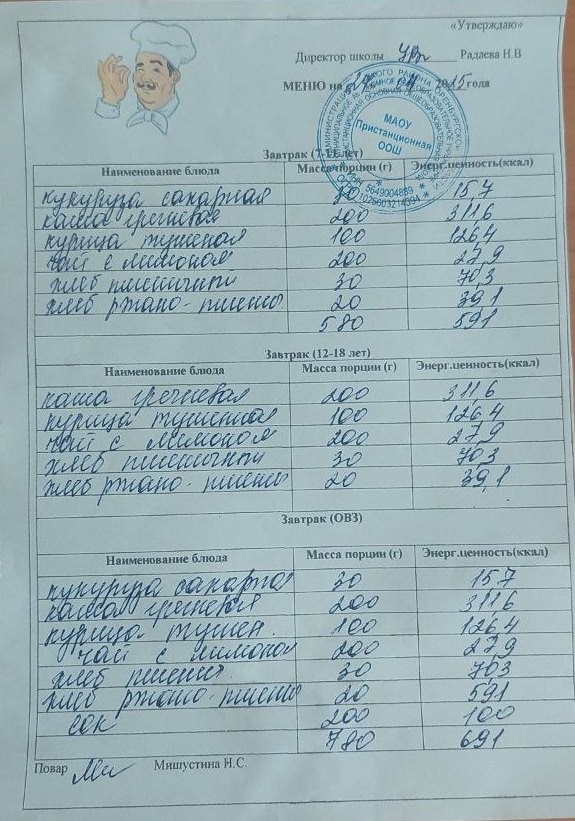 «Утверждаю»
Директор школы Радаева Н.В
МЕНЮ на 2015года
МАОУ
Пристанционная
ООШ
ИНН 5649004889
ОГРН 1025603214394
Завтрак (7-11 лет)
Наименование блюда Масса порции (г) Энерг.ценность(ккал)
кукуруза сахарная 30 15,7
каша гречневая 200 311,6
курица тушеная 100 126,4
чай с лимоном 200 27,9
хлеб пшеничный 30 70,3
хлеб ржано-пшенич 20 39,1
580 591
Завтрак (12-18 лет)
Наименование блюда Масса порции (г) Энерг.ценность(ккал)
каша гречневая 200 311,6
курица тушенная 100 126,4
чай с лимоном 200 27,9
хлеб пшеничный 30 70,3
хлеб ржано-пшенич 20 39,1
Завтрак (ОВЗ)
Наименование блюда Масса порции (г) Энерг.ценность(ккал)
кукуруза сахарна 30 15,7
каша гречневая 200 311,6
курица тушен. 100 126,4
чай с лимоном 200 27,9
хлеб пшенич 30 70,3
хлеб ржано-пшенич 20 591
сок 200 100
780 691
Повар Мишустина Н.С.